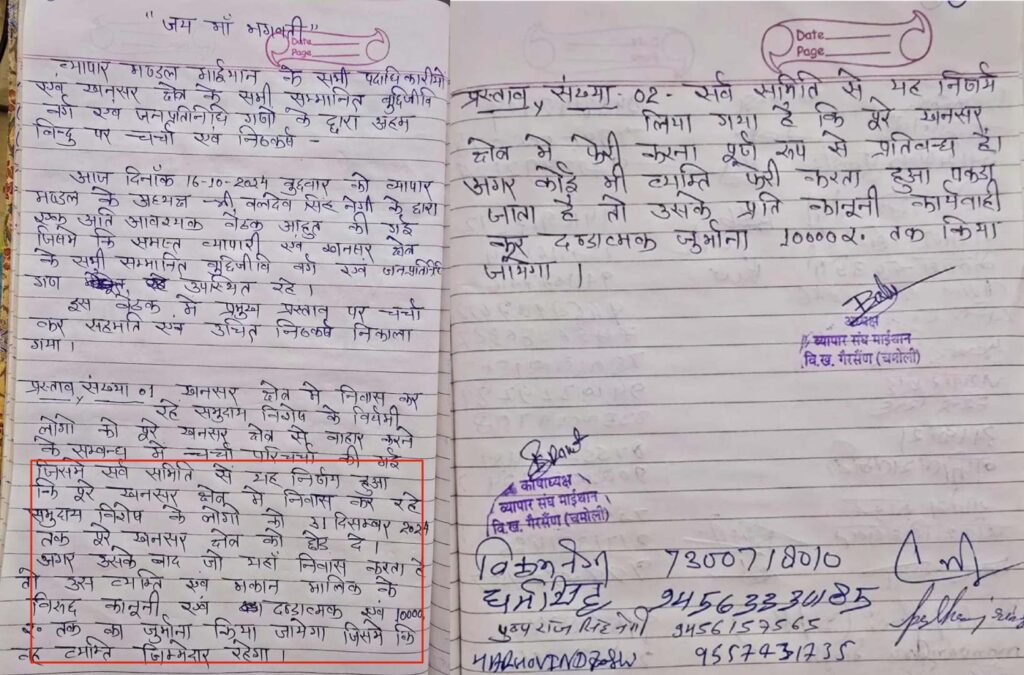 "जय माँ भगवती"
Date
Page
व्यापार मण्डल माईथान के सभी पदाधिकारीयो
एवं खनसर क्षेत्र के सभी सम्मानित बुद्धिजीवि
वर्ग एवं जनप्रतिनिधि गणो के द्वारा अहम
बिन्दु पर चर्चा एवं निष्कर्ष -
आज दिनाँक 16-10-2024 बुद्धवार को व्यापार
मण्डल के अध्यक्ष श्री बलदेव सिंह नेगी के द्वारा
एक अति आवश्यक बैठक आहुत की गई
जिसमे कि समस्त व्यापारी एवं खनसर क्षेत्र
के सभी सम्मानित बुद्धिजीवि वर्ग एवं जनप्रतिनिधि
गण उपस्थित रहे ।
इस बैठक मे प्रमुख प्रस्ताव पर चर्चा
कर सहमति एवं उचित निष्कर्ष निकाला
गया ।
प्रस्ताव संख्या 01 खनसर क्षेत्र मे निवास कर
रहे समुदाय विशेष के विधर्मी
लोगो को पूरे खनसर क्षेत्र से बाहार करने
के सम्बन्ध मे चर्चा परिचर्चा की गई
जिसमे सर्व समिति से यह निर्णय हुआ
कि पूरे खनसर क्षेत्र मे निवास कर रहे
समुदाय विशेष के लोगो को 31 दिसम्बर 2024
तक पूरे खनसर क्षेत्र को छोड दे ।
अगर उसके बाद जो यहाँ निवास करता है
तो उस व्यक्ति एवं मकान मालिक के
विरुद्ध कानूनी एवं दण्डात्मक एवं 10000
रु० तक का जुर्माना किया जायेगा जिसमे कि
वह व्यक्ति जिम्मेदार रहेगा ।
Date
Page
प्रस्ताव संख्या - 02 - सर्व समिति से यह निर्णय
लिया गया है कि पूरे खनसर
क्षेत्र मे फेरी करना पूर्ण रूप से प्रतिबन्ध है।
अगर कोई भी व्यक्ति फेरी करता हुआ पकडा
जाता है तो उसके प्रति कानूनी कार्यवाही
कर दण्डात्मक जुर्माना 10000रु० तक किया
जायेगा ।
अध्यक्ष
व्यापार संघ माईथान
वि.ख. गैरसैंण (चमोली)
कोषाध्यक्ष
व्यापार संघ माईथान
वि.ख. गैरसैंण (चमोली)
विक्रम नेगी 7300718010
धर्म सिंह 9456333485
पुष्पराज सिंह नेगी 9456157565
9557431735